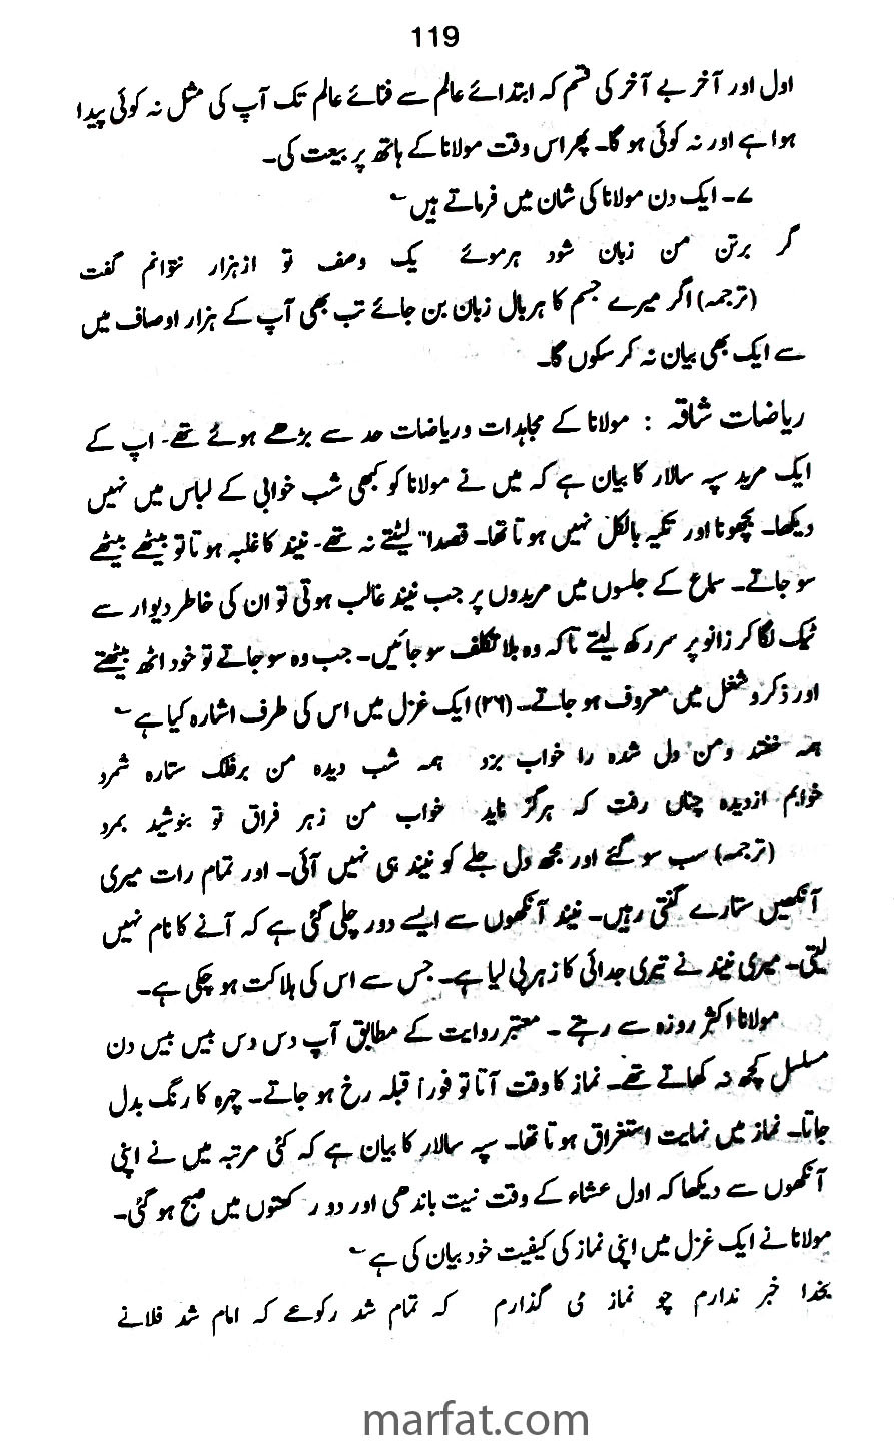 119
اول اور آخر بے آخر کی قسم کہ ابتدائے عالم سے فنائے عالم تک آپ کی مثل نہ کوئی پیدا
ہوا ہے اور نہ کوئی ہو گا۔ پھر اس وقت مولانا کے ہاتھ پر بیعت کی۔
۷۔ ایک دن مولانا کی شان میں فرماتے ہیں ؎
گر برتن من زبان شود ہرموئے یک وصف تو ازہزار نتوانم گفت
(ترجمہ) اگر میرے جسم کا ہر بال زبان بن جائے تب بھی آپ کے ہزار اوصاف میں
سے ایک بھی بیان نہ کر سکوں گا۔
ریاضات شاقہ : مولانا کے مجاہدات و ریاضات حد سے بڑھے ہوئے تھے۔ اپ کے
ایک مرید سپہ سالار کا بیان ہے کہ میں نے مولانا کو کبھی شب خوابی کے لباس میں نہیں
دیکھا۔ بچھونا اور تکیہ بالکل نہیں ہوتا تھا۔ قصدا" لیٹتے نہ تھے۔ نیند کا غلبہ ہوتا تو بیٹھے بیٹھے
سو جاتے۔ سماع کے جلسوں میں مریدوں پر جب نیند غالب ہوتی تو ان کی خاطر دیوار سے
ٹیک لگا کر زانو پر سر رکھ لیتے تاکہ وہ بلا تکلف سو جائیں۔ جب وہ سو جاتے تو خود اٹھ بیٹھتے
اور ذکر و شغل میں مصروف ہو جاتے۔ (۲۶) ایک غزل میں اس کی طرف اشارہ کیا ہے ؎
ہمہ خفتند ومن دل شدہ را خواب برد ہمہ شب دیدہ من برفلک ستارہ شمرد
خوابم ازدیدہ چناں رفت کہ ہرگز ناید خواب من زہر فراق تو بنوشید بمرد
(ترجمہ) سب سو گئے اور مجھ دل جلے کو نیند ہی نہیں آئی۔ اور تمام رات میری
آنکھیں ستارے گنتی رہیں۔ نیند آنکھوں سے ایسے دور چلی گئی ہے کہ آنے کا نام نہیں
لیتی۔ میری نیند نے تیری جدائی کا زہر پی لیا ہے۔ جس سے اس کی ہلاکت ہو چکی ہے۔
مولانا اکثر روزہ سے رہتے ۔ معتبر روایت کے مطابق آپ دس دس بیس بیس دن
مسلسل کچھ نہ کھاتے تھے۔ نماز کا وقت آتا تو فوراً قبلہ رخ ہو جاتے۔ چہرہ کا رنگ بدل
جاتا۔ نماز میں نہایت استغراق ہوتا تھا۔ سپہ سالار کا بیان ہے کہ کئی مرتبہ میں نے اپنی
آنکھوں سے دیکھا کہ اول عشاء کے وقت نیت باندھی اور دو رکعتوں میں صبح ہو گئی۔
مولانا نے ایک غزل میں اپنی نماز کی کیفیت خود بیان کی ہے ؎
بخدا خبر ندارم چو نماز می گذارم کہ تمام شد رکوعے کہ امام شد فلانے
marfat.com